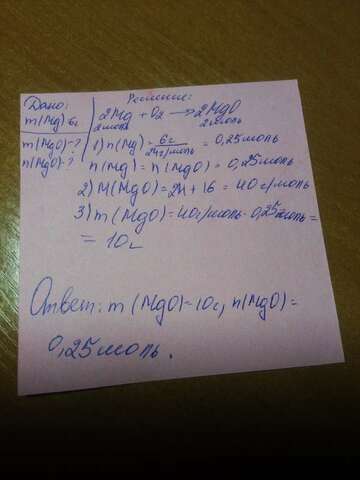 Дано:
m(Mg)=6г
m(MgO)-?
n(MgO)-?
Решение:
2Mg + O2 → 2MgO
2моль 2моль
1) n(Mg) = 6г / 24г/моль = 0,25моль
n(Mg) = n(MgO) = 0,25моль
2) M(MgO) = 24 + 16 = 40г/моль
3) m(MgO) = 40г/моль · 0,25моль =
= 10г
Ответ: m(MgO)=10г, n(MgO)=
0,25моль.